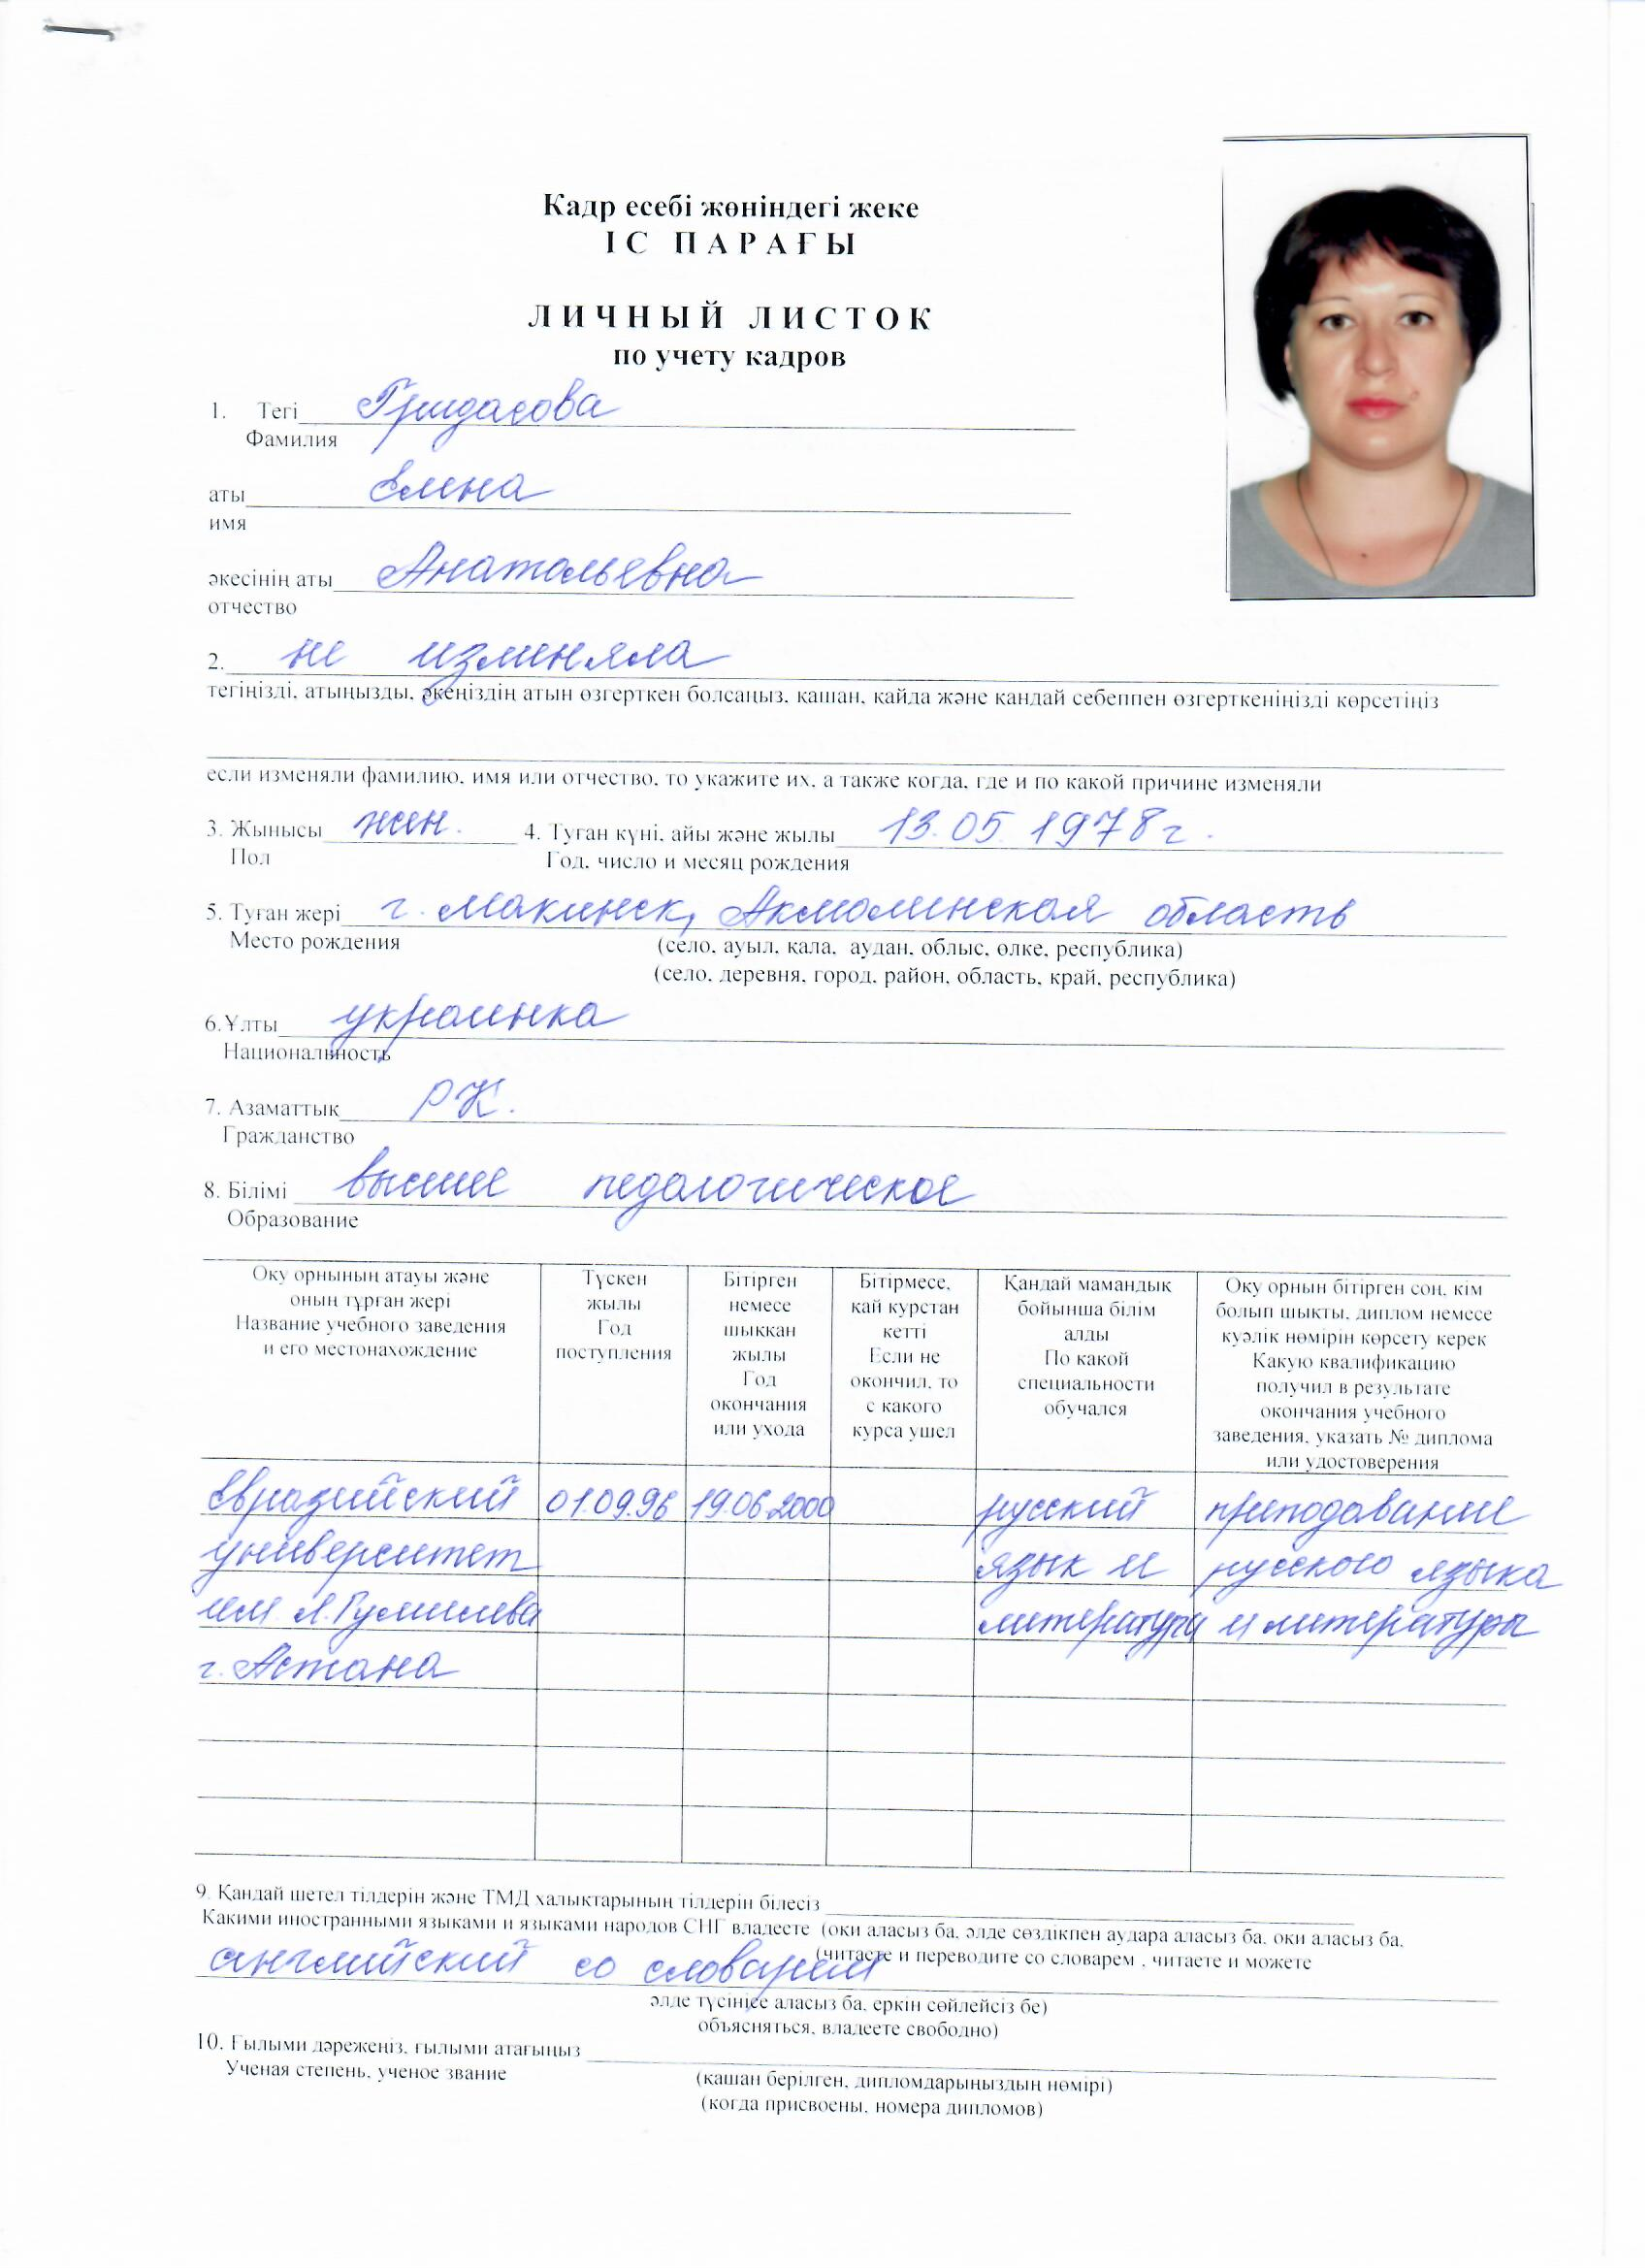 Кадр есебі жөніндегі жеке
ІС ПАРАҒЫ
ЛИЧНЫЙ ЛИСТОК
по учету кадров
1. Тегі Гридасова
Фамилия
аты Елена
имя
әкесінің аты Анатольевна
отчество
2. не изменяла
тегіңізді, атыңызды, әкеңіздің атын өзгерткен болсаңыз, қашан, қайда және қандай себеппен өзгерткеніңізді көрсетіңіз
если изменяли фамилию, имя или отчество, то укажите их, а также когда, где и по какой причине изменяли
3. Жынысы жен. 4. Туған күні, айы және жылы 13.05.1978г.
Пол Год, число и месяц рождения
5. Туған жері г. Макинск, Акмолинская область
Место рождения (село, ауыл, қала, аудан, облыс, өлке, республика)
(село, деревня, город, район, область, край, республика)
6.Ұлты украинка
Национальность
7. Азаматтық РК.
Гражданство
8. Білімі высшее педагогическое
Образование
Оқу орнының атауы және
оның тұрған жері
Название учебного заведения
и его местонахождение
Түскен
жылы
Год
поступления
Бітірген
немесе
шыққан
жылы
Год
окончания
или ухода
Бітірмесе,
қай курстан
кетті
Если не
окончил, то
с какого
курса ушел
Қандай мамандық
бойынша білім
алды
По какой
специальности
обучался
Оқу орнын бітірген соң, кім
болып шықты, диплом немесе
куәлік нөмірін көрсету керек
Какую квалификацию
получил в результате
окончания учебного
заведения, указать № диплома
или удостоверения
Евразийский 01.09.96 19.06.2000 русский преподавание
университет язык и русского языка
им. Л.Гумилева литература и литературы
г. Астана
9. Қандай шетел тілдерін және ТМД халықтарының тілдерін білесіз
Какими иностранными языками и языками народов СНГ владеете (оқи аласыз ба, әлде сөздікпен аудара аласыз ба, оқи аласыз ба,
(читаете и переводите со словарем , читаете и можете
английский со словарем
әлде түсінісе аласыз ба, еркін сөйлейсіз бе)
объясняться, владеете свободно)
10. Ғылыми дәрежеңіз, ғылыми атағыңыз
Ученая степень, ученое звание (қашан берілген, дипломдарыңыздың нөмірі)
(когда присвоены, номера дипломов)